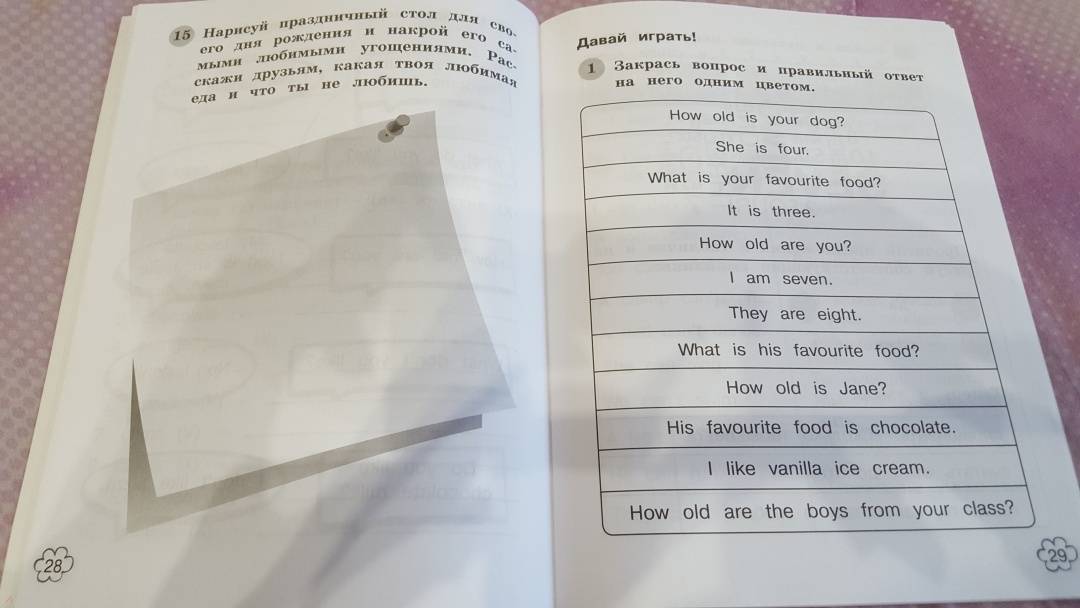 15 Нарисуй праздничный стол для сво-
его дня рождения и накрой его са-
мыми любимыми угощениями. Рас-
скажи друзьям, какая твоя любимая
еда и что ты не любишь.
28
Давай играть!
1 Закрась вопрос и правильный ответ
на него одним цветом.
How old is your dog?
She is four.
What is your favourite food?
It is three.
How old are you?
I am seven.
They are eight.
What is his favourite food?
How old is Jane?
His favourite food is chocolate.
I like vanilla ice cream.
How old are the boys from your class?
29